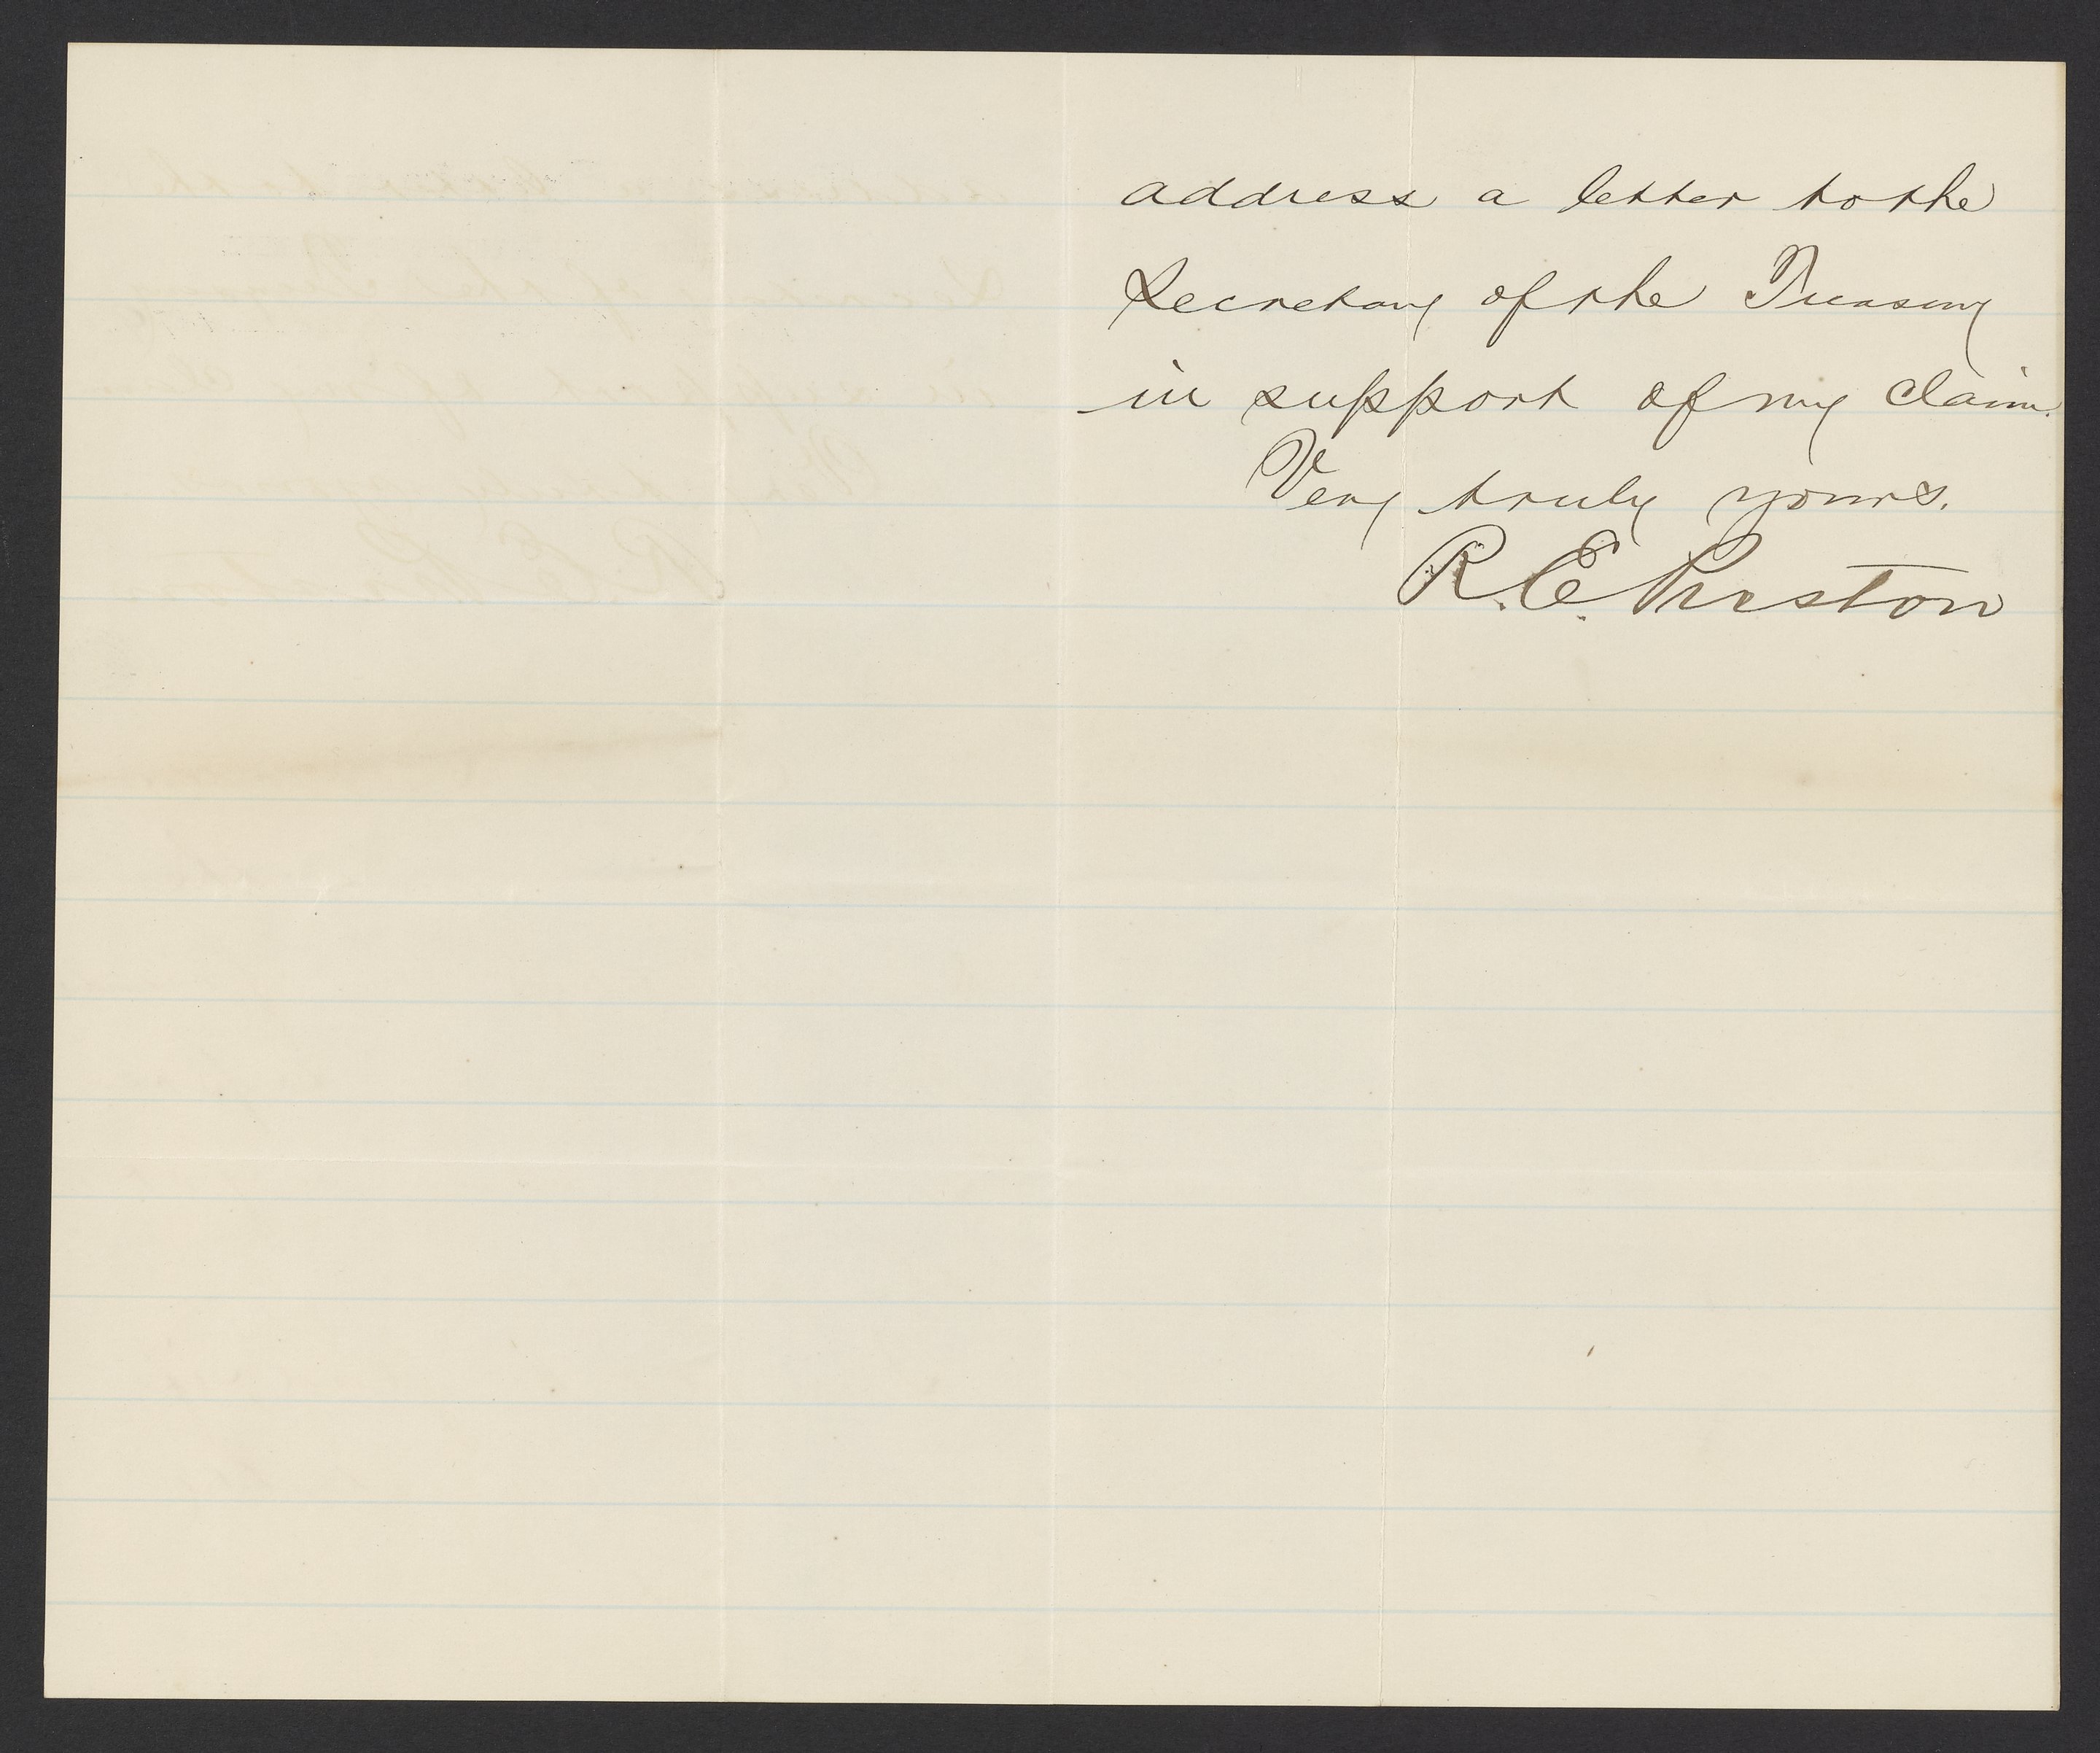 address a letter to the
Secretary of the Treasury
in support of my claim.
Very truly yours.
R. E. Preston